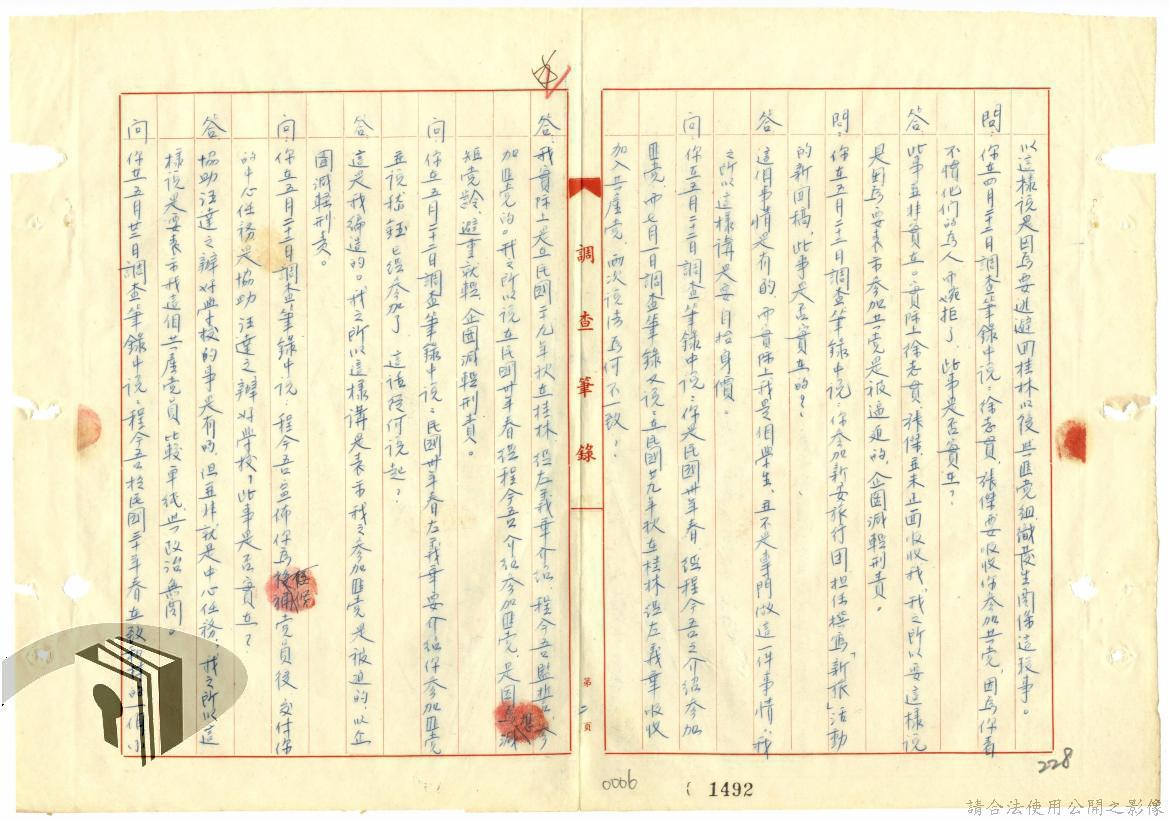 以這樣說是因為要逃避回桂林以後與匪党組織發生關係這段事。
問：你在四月二十二日調查筆錄中說：徐志貫，張傑要吸收你參加共党，因為你看
不慣他們的為人而婉拒了，此事是否實在？
答：此事並非實在。實際上徐志貫張傑並未正面吸收我，我之所以要這樣說
是因為要表示參加共党是被逼迫的，企圖減輕刑責。
問：你在五月二十二日調查筆錄中說：你參加新安旅行團担任撰寫「新旅」活動
的新聞稿，此事是否實在的？
答：這個事情是有的，而實際上我是個學生，並不是專門做這一件事情，我
之所以這樣講是要自抬身價。
問：你在五月二十二日調查筆錄中說：你是民國卅年春，經程今吾之介紹參加
匪党，而七月一日調查筆錄又說：在民國廿九年秋在桂林經左義華吸收
加入共產党，兩次說法為何不一致？
調查筆錄
第二頁
答：我實際上是在民國二十九年秋在桂林經左義華介紹，程今吾監誓參
加匪党的。我之所以說在民國卅年春經程今吾介紹參加匪党，是因為減
短党齡、避重就輕、企圖減輕刑責。
問：你在五月二十二日調查筆錄中說：民國卅年春左義華要介紹你參加匪党
並說嵇鈺已經參加了，這話從何說起？
答：這是我編造的。我之所以這樣講是表示我之參加匪党是被迫的，以企
圖減輕刑責。
問：你在五月二十二日調查筆錄中說：程今吾宣佈你為候補党員後交付你
的中心任務是協助汪達之辦好學校，此事是否實在？
答：協助汪達之辦好學校的事是有的，但並非就是中心任務，我之所以這
樣說是要表示我這個共產党員比較單純，與政治無關。
問：你在五月廿二日調查筆錄中說：程今吾於民國三十年春在的一個小
0006
1492
228
請合法使用公開之影像